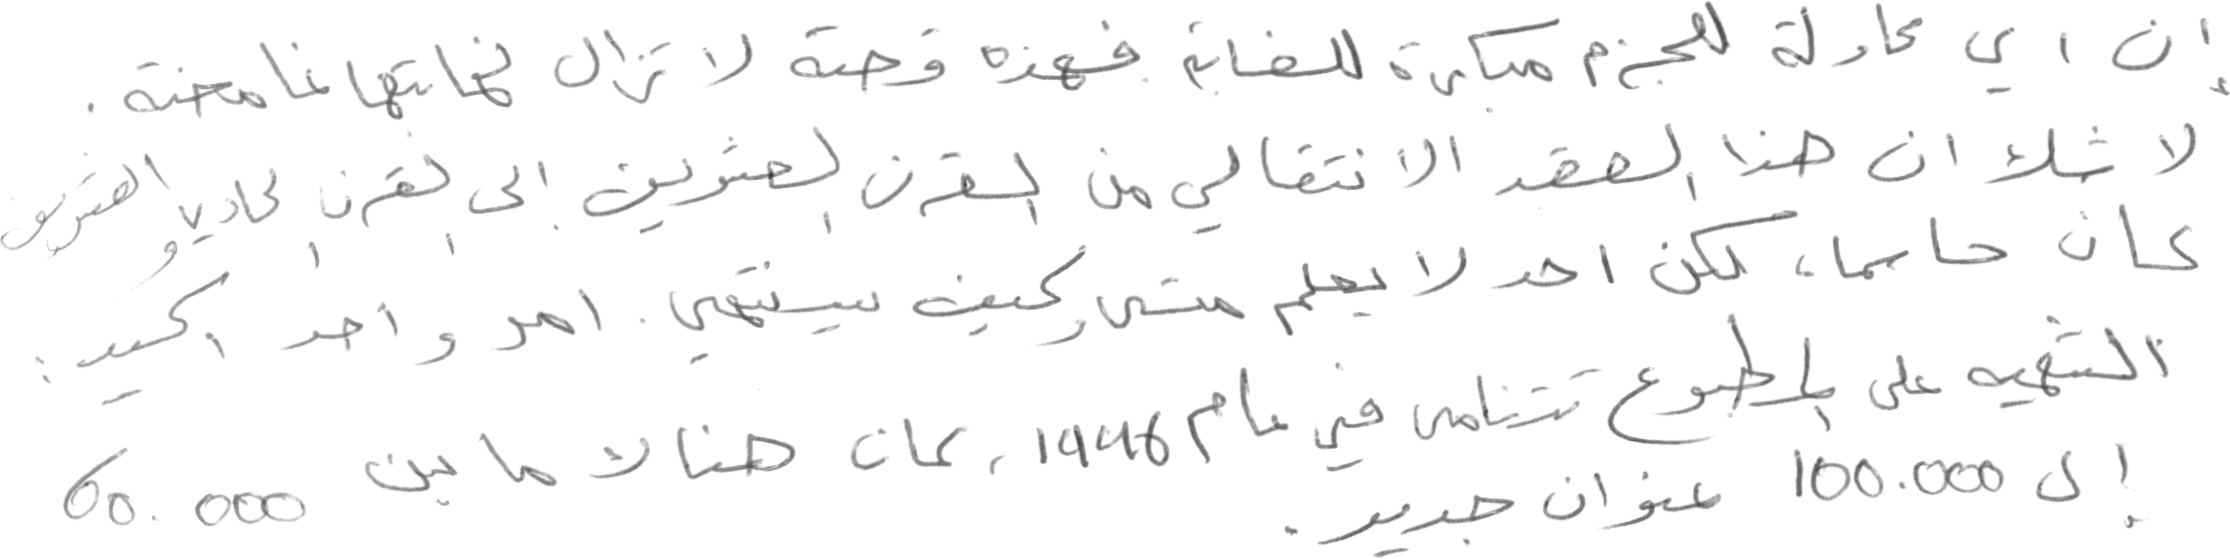 إن اي محاولة للجزم مبكرة للغاية. فهذه قصة لا تزال نهايتها غامضة.
لا شك ان هذا العقد الانتقالي من القرن العشرين إلى القرن الحادي والعشرين
كان حاسما، لكن احد لا يعلم متى وكيف سينتهي. امر واحد اكيد:
الشهية على المطبوع تتنامى في عام 1996، كان هناك ما بين 60.000
إلى 100.000 عنوان جديد.